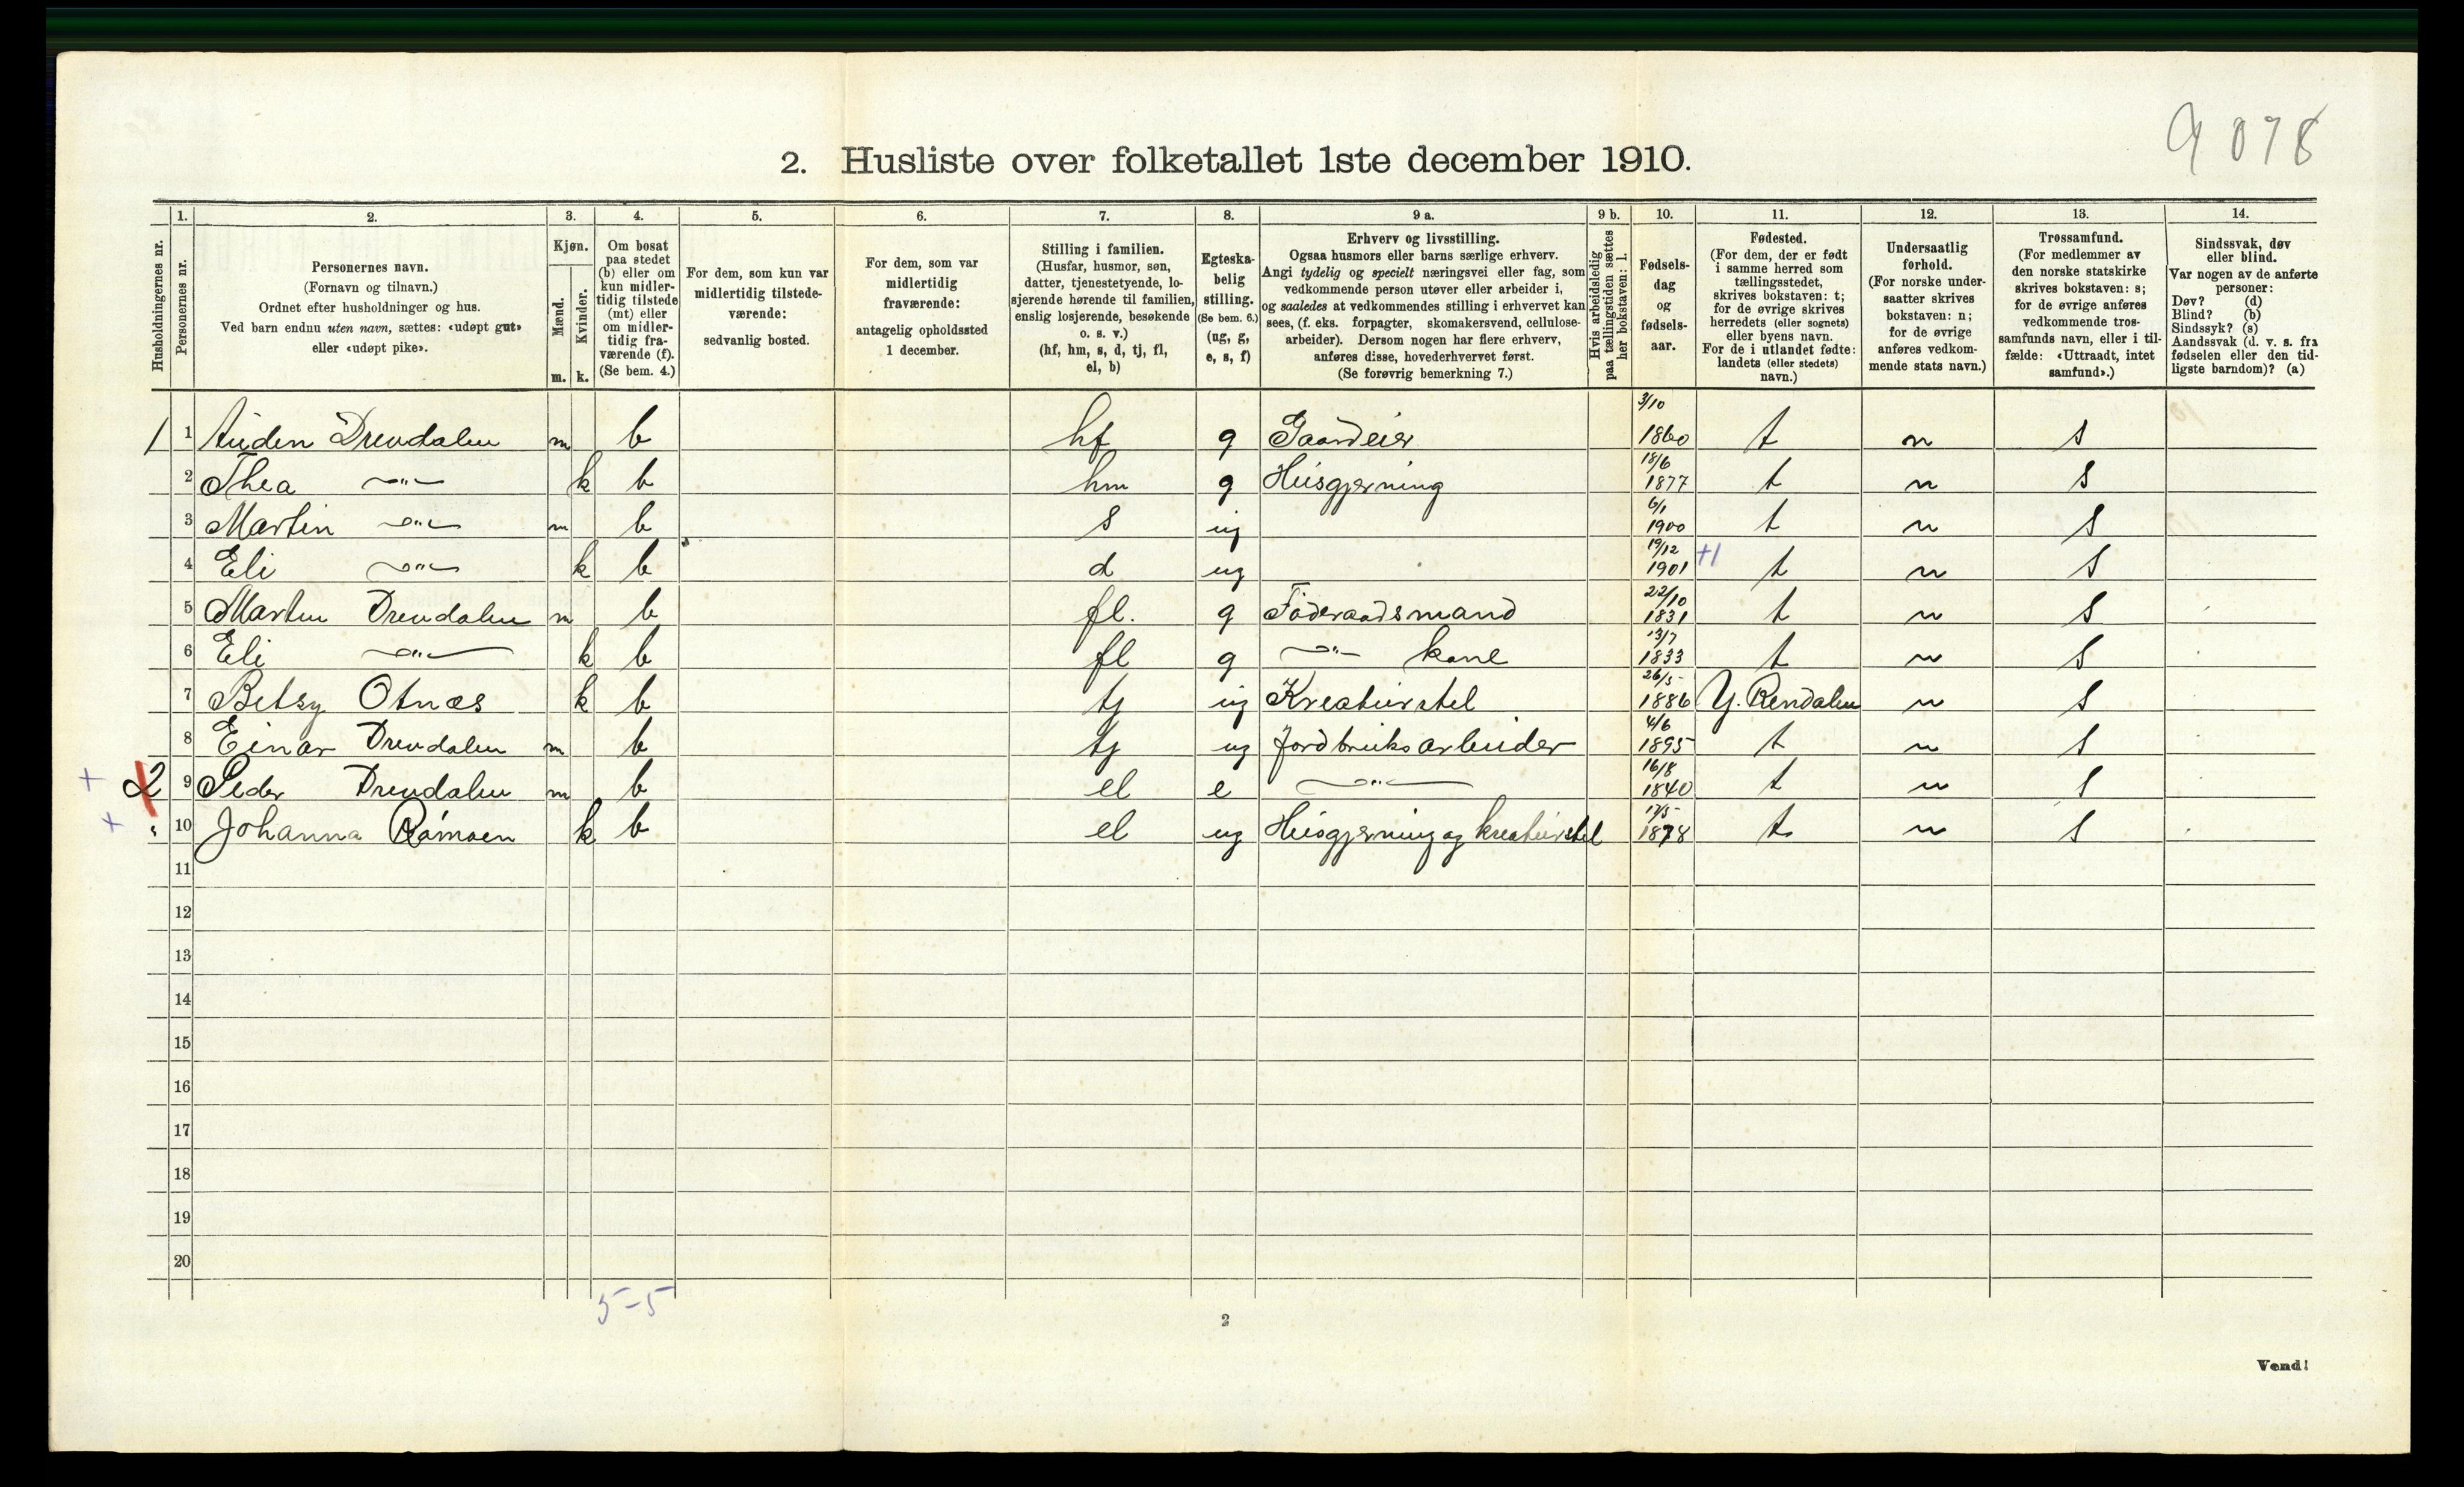 9078
2. Husliste over folketallet 1ste december 1910.
1. 2. 3. 4. 5. 6. 7. 8. 9 a. 9 b. 10. 11. 12. 13. 14.
Husholdningernes nr.
Personernes nr.
Personernes navn.
(Fornavn og tilnavn.)
Ordnet efter husholdninger og hus.
Ved barn endnu uten navn, sættes: «udøpt gut»
eller «udøpt pike».
Kjøn.
Mænd.
Kvinder.
m. k.
Om bosat
paa stedet
(b) eller om
kun midler-
tidig tilstede
(mt) eller
om midler-
tidig fra-
værende (f).
(Se bem. 4.)
For dem, som kun var
midlertidig tilstede-
værende:
sedvanlig bosted.
For dem, som var
midlertidig
fraværende:
antagelig opholdssted
1 december.
Stilling i familien.
(Husfar, husmor, søn,
datter, tjenestetyende, lo-
sjerende hørende til familien,
enslig losjerende, besøkende
o. s. v.)
(hf, hm, s, d, tj, fl,
el, b)
Egteska-
belig
stilling.
(Se bem. 6.)
(ug, g,
e, s, f)
Erhverv og livsstilling.
Ogsaa husmors eller barns særlige erhverv.
Angi tydelig og specielt næringsvei eller fag, som
vedkommende person utøver eller arbeider i,
og saaledes at vedkommendes stilling i erhvervet kan
sees, (f. eks. forpagter, skomakersvend, cellulose-
arbeider). Dersom nogen har flere erhverv,
anføres disse, hovederhvervet først.
(Se forøvrig bemerkning 7.)
Hvis arbeidsledig
paa tællingstiden sættes
her bokstaven: l.
Fødsels-
dag
og
fødsels-
aar.
Fødested.
(For dem, der er født
i samme herred som
tællingsstedet,
skrives bokstaven: t;
for de øvrige skrives
herredets (eller sognets)
eller byens navn.
For de i utlandet fødte:
landets (eller stedets)
navn.)
Undersaatlig
forhold.
(For norske under-
saatter skrives
bokstaven: n;
for de øvrige
anføres vedkom-
mende stats navn.)
Trossamfund.
(For medlemmer av
den norske statskirke
skrives bokstaven: s;
for de øvrige anføres
vedkommende tros-
samfunds navn, eller i til-
fælde: «Uttraadt, intet
samfund».)
Sindssvak, døv
eller blind.
Var nogen av de anførte
personer:
Døv? (d)
Blind? (b)
Sindssyk? (s)
Aandssvak (d. v. s. fra
fødselen eller den tid-
ligste barndom)? (a)
1 1 Auden Drevdalen m b hf g Gaardeier 3/10 1860 t n s
2 Thea —"— k b hm g Husgjerning 18/6 1877 t n s
3 Martin —"— m b s ug 6/1 1900 t n s
4 Eli —"— k b d ug 19/12 1901 +1 t n s
5 Martin Drevdalen m b fl. g Føderaadsmand 22/10 1831 t n s
6 Eli —"— k b fl g —"— kone 13/7 1833 t n s
7 Betsy Otnæs k b tj ug Kreaturstel 26/5 1886 Y. Rendalen n s
8 Einar Drevdalen m b tj ug Jordbruksarbeider 4/6 1895 t n s
+ 2 9 Peder Drevdalen m b el e —"— 16/8 1840 t n s
+ 10 Johanna Rømoen k b el ug Husgjerning og kreaturstel 1878 t n s
11
12
13
14
15
16
17
18
19
20
5-5
2
Vend!